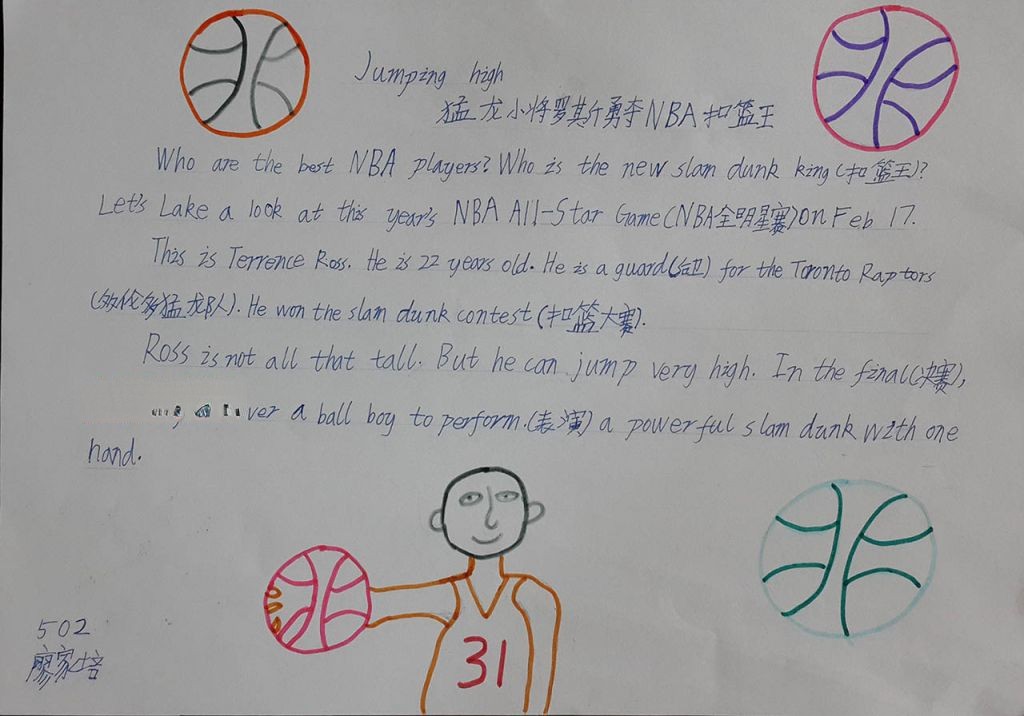 Jumping high
猛龙小将罗斯勇夺NBA扣篮王
Who are the best NBA players? Who is the new slam dunk king(扣篮王)?
Let's Lake a look at this year's NBA All-Star Game(NBA全明星赛)on Feb 17.
This is Terrence Ross. He is 22 years old. He is a guard(后卫) for the Toronto Raptors
(多伦多猛龙队). He won the slam dunk contest (扣篮大赛).
Ross is not all that tall. But he can jump very high. In the final(决赛),
a ball boy to perform.(表演) a powerful slam dunk with one
hand.
31
502
廖家培